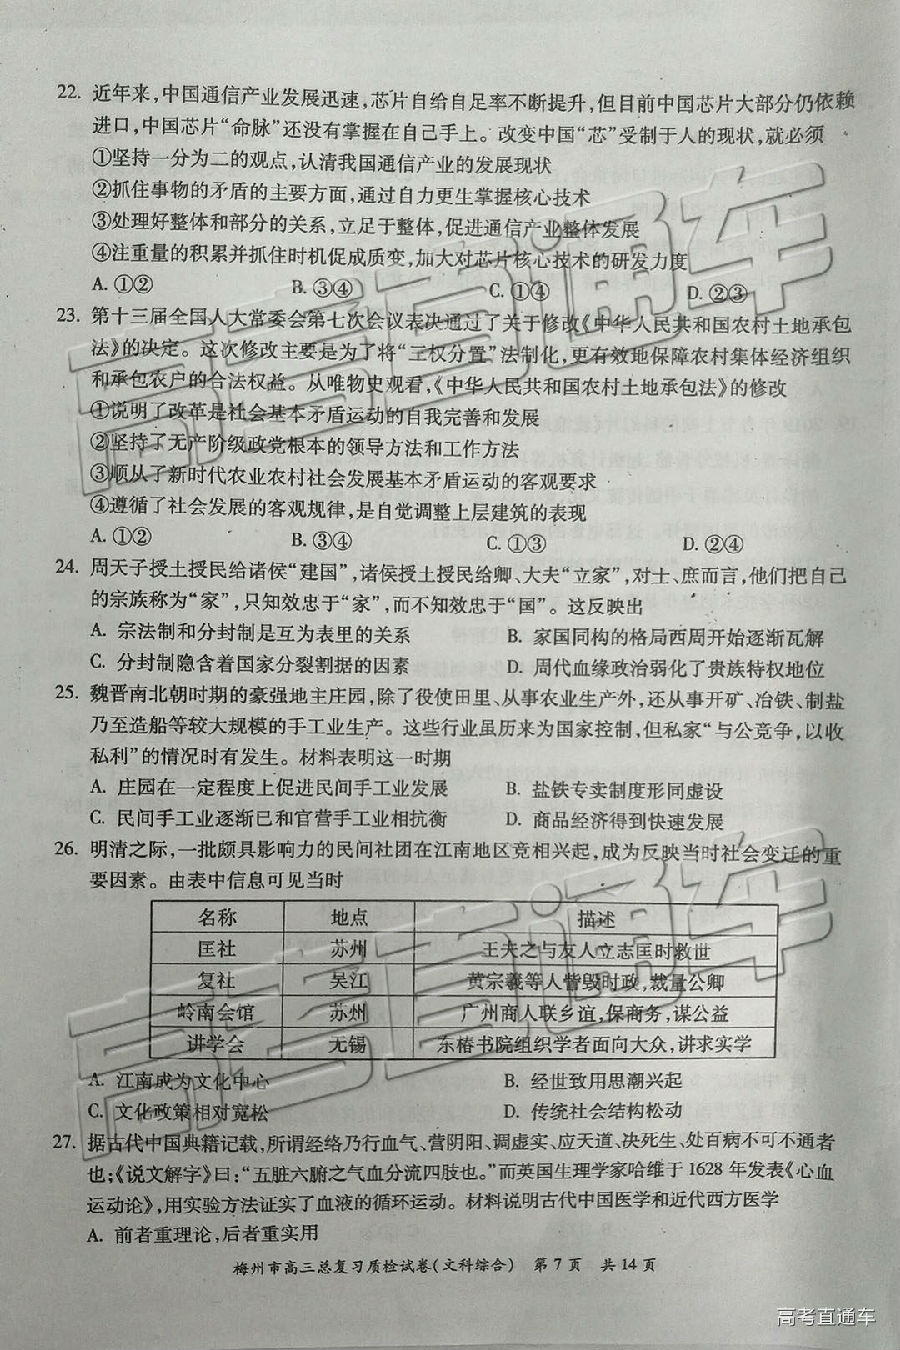 22. 近年来,中国通信产业发展迅速,芯片自给自足率不断提升,但目前中国芯片大部分仍依赖
进口,中国芯片“命脉”还没有掌握在自己手上。改变中国“芯”受制于人的现状,就必须
①坚持一分为二的观点,认清我国通信产业的发展现状
②抓住事物的矛盾的主要方面,通过自力更生掌握核心技术
③处理好整体和部分的关系,立足于整体,促进通信产业整体发展
④注重量的积累并抓住时机促成质变,加大对芯片核心技术的研发力度
A. ①② B. ③④ C. ①④ D. ②③
23. 第十三届全国人大常委会第七次会议表决通过了关于修改《中华人民共和国农村土地承包
法》的决定。这次修改主要是为了将“三权分置”法制化,更有效地保障农村集体经济组织
和承包农户的合法权益。从唯物史观看,《中华人民共和国农村土地承包法》的修改
①说明了改革是社会基本矛盾运动的自我完善和发展
②坚持了无产阶级政党根本的领导方法和工作方法
③顺从了新时代农业农村社会发展基本矛盾运动的客观要求
④遵循了社会发展的客观规律,是自觉调整上层建筑的表现
A. ①② B. ③④ C. ①③ D. ②④
24. 周天子授土授民给诸侯“建国”,诸侯授土授民给卿、大夫“立家”,对士、庶而言,他们把自己
的宗族称为“家”,只知效忠于“家”,而不知效忠于“国”。这反映出
A. 宗法制和分封制是互为表里的关系 B. 家国同构的格局西周开始逐渐瓦解
C. 分封制隐含着国家分裂割据的因素 D. 周代血缘政治弱化了贵族特权地位
25. 魏晋南北朝时期的豪强地主庄园,除了役使田里、从事农业生产外,还从事开矿、冶铁、制盐
乃至造船等较大规模的手工业生产。这些行业虽历来为国家控制,但私家“与公竞争,以收
私利”的情况时有发生。材料表明这一时期
A. 庄园在一定程度上促进民间手工业发展 B. 盐铁专卖制度形同虚设
C. 民间手工业逐渐已和官营手工业相抗衡 D. 商品经济得到快速发展
26. 明清之际,一批颇具影响力的民间社团在江南地区竞相兴起,成为反映当时社会变迁的重
要因素。由表中信息可见当时
名称 地点 描述
匡社 苏州 王夫之与友人立志匡时救世
复社 吴江 黄宗羲等人訾毁时政,裁量公卿
岭南会馆 苏州 广州商人联乡谊,保商务,谋公益
讲学会 无锡 东椿书院组织学者面向大众,讲求实学
A. 江南成为文化中心 B. 经世致用思潮兴起
C. 文化政策相对宽松 D. 传统社会结构松动
27. 据古代中国典籍记载,所谓经络乃行血气、营阴阳、调虚实、应天道、决死生、处百病不可不通者
也;《说文解字》曰:“五脏六腑之气血分流四肢也。”而英国生理学家哈维于1628年发表《心血
运动论》,用实验方法证实了血液的循环运动。材料说明古代中国医学和近代西方医学
A. 前者重理论,后者重实用
梅州市高三总复习质检试卷(文科综合) 第7页 共14页
高考直通车
高考直通车
高考直通车